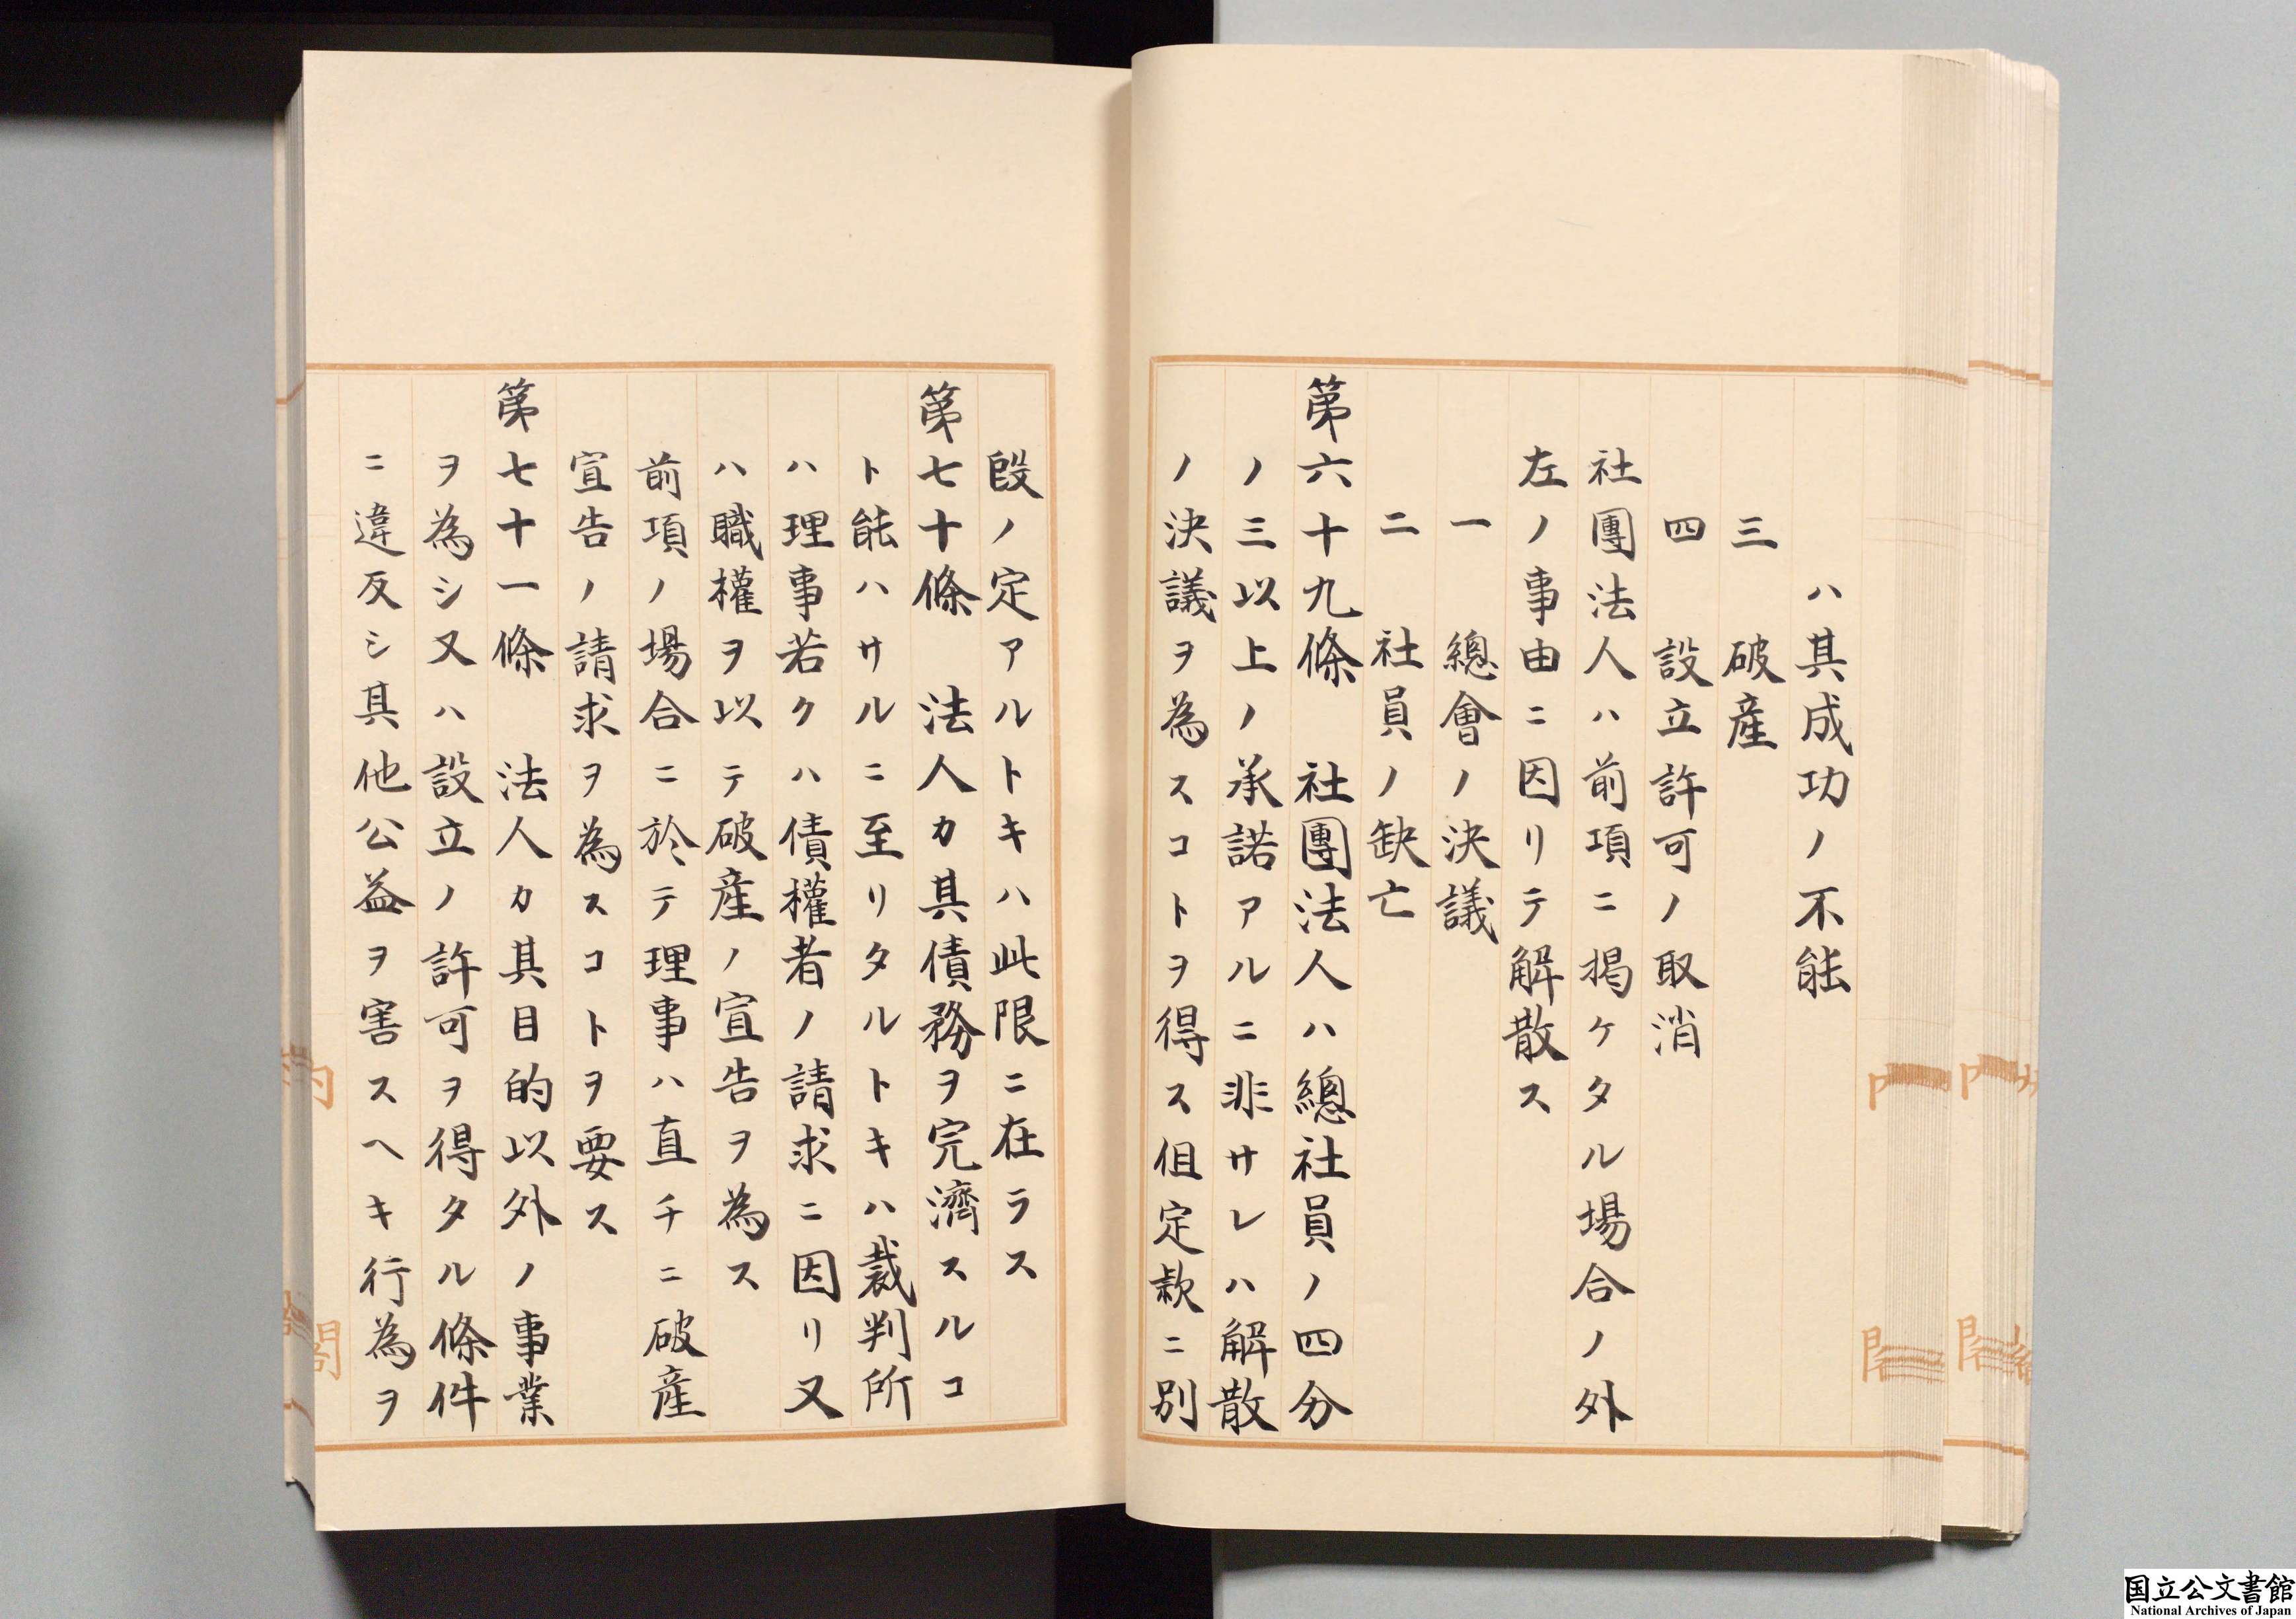 ハ其成功ノ不能
三　破産
四　設立許可ノ取消
社團法人ハ前項ニ掲ケタル場合ノ外
左ノ事由ニ因リテ解散ス
一　總會ノ決議
二　社員ノ缺亡
第六十九條　社團法人ハ總社員ノ四分
ノ三以上ノ承諾アルニ非サレハ解散
ノ決議ヲ為スコトヲ得ス但定款ニ別
段ノ定アルトキハ此限ニ在ラス
第七十條　法人カ其債務ヲ完濟スルコ
ト能ハサルニ至リタルトキハ裁判所
ハ理事若クハ債權者ノ請求ニ因リ又
ハ職權ヲ以テ破産ノ宣告ヲ為ス
前項ノ場合ニ於テ理事ハ直チニ破産
宣告ノ請求ヲ為スコトヲ要ス
第七十一條　法人カ其目的以外ノ事業
ヲ為シ又ハ設立ノ許可ヲ得タル條件
ニ違反シ其他公益ヲ害スヘキ行為ヲ
国立公文書館
National Archives of Japan